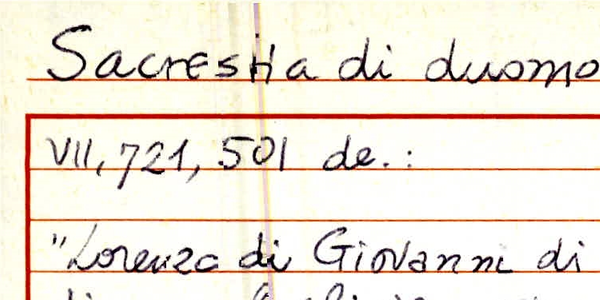 Sacrestia di duomo
VII, 721, 501 de.:
"Lorenzo di Giovanni di